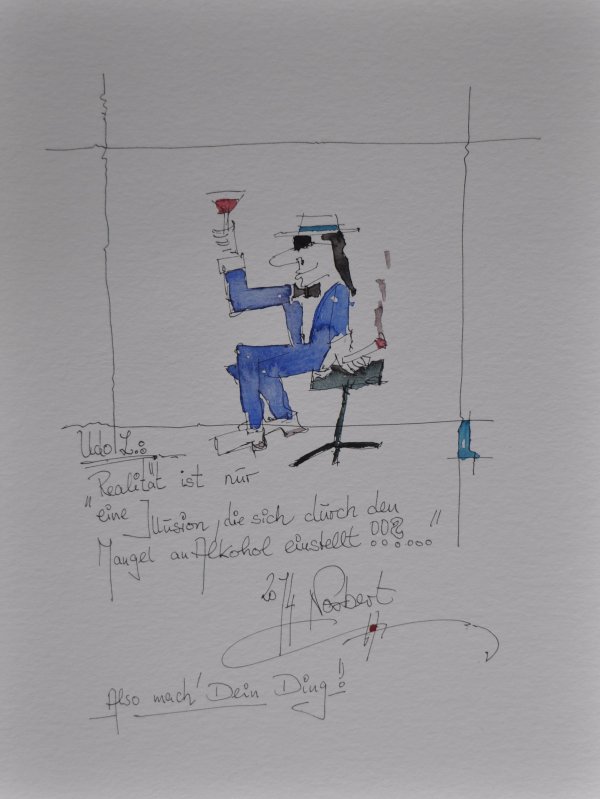 Udo L.:
"Realität ist nur
eine Illusion, die sich durch den
Mangel an Alkohol einstellt !!??....."
2014 Norbert
Also mach' Dein Ding!!